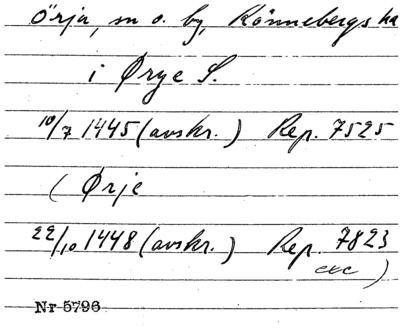 Örja, sn o. by, Rönnebergs hd
i Ørye S.
10/7 1445 (avskr.) Rep. 7525
( Ørje
22/10 1448 (avskr.) Rep. 7823
exc )
Nr 5796